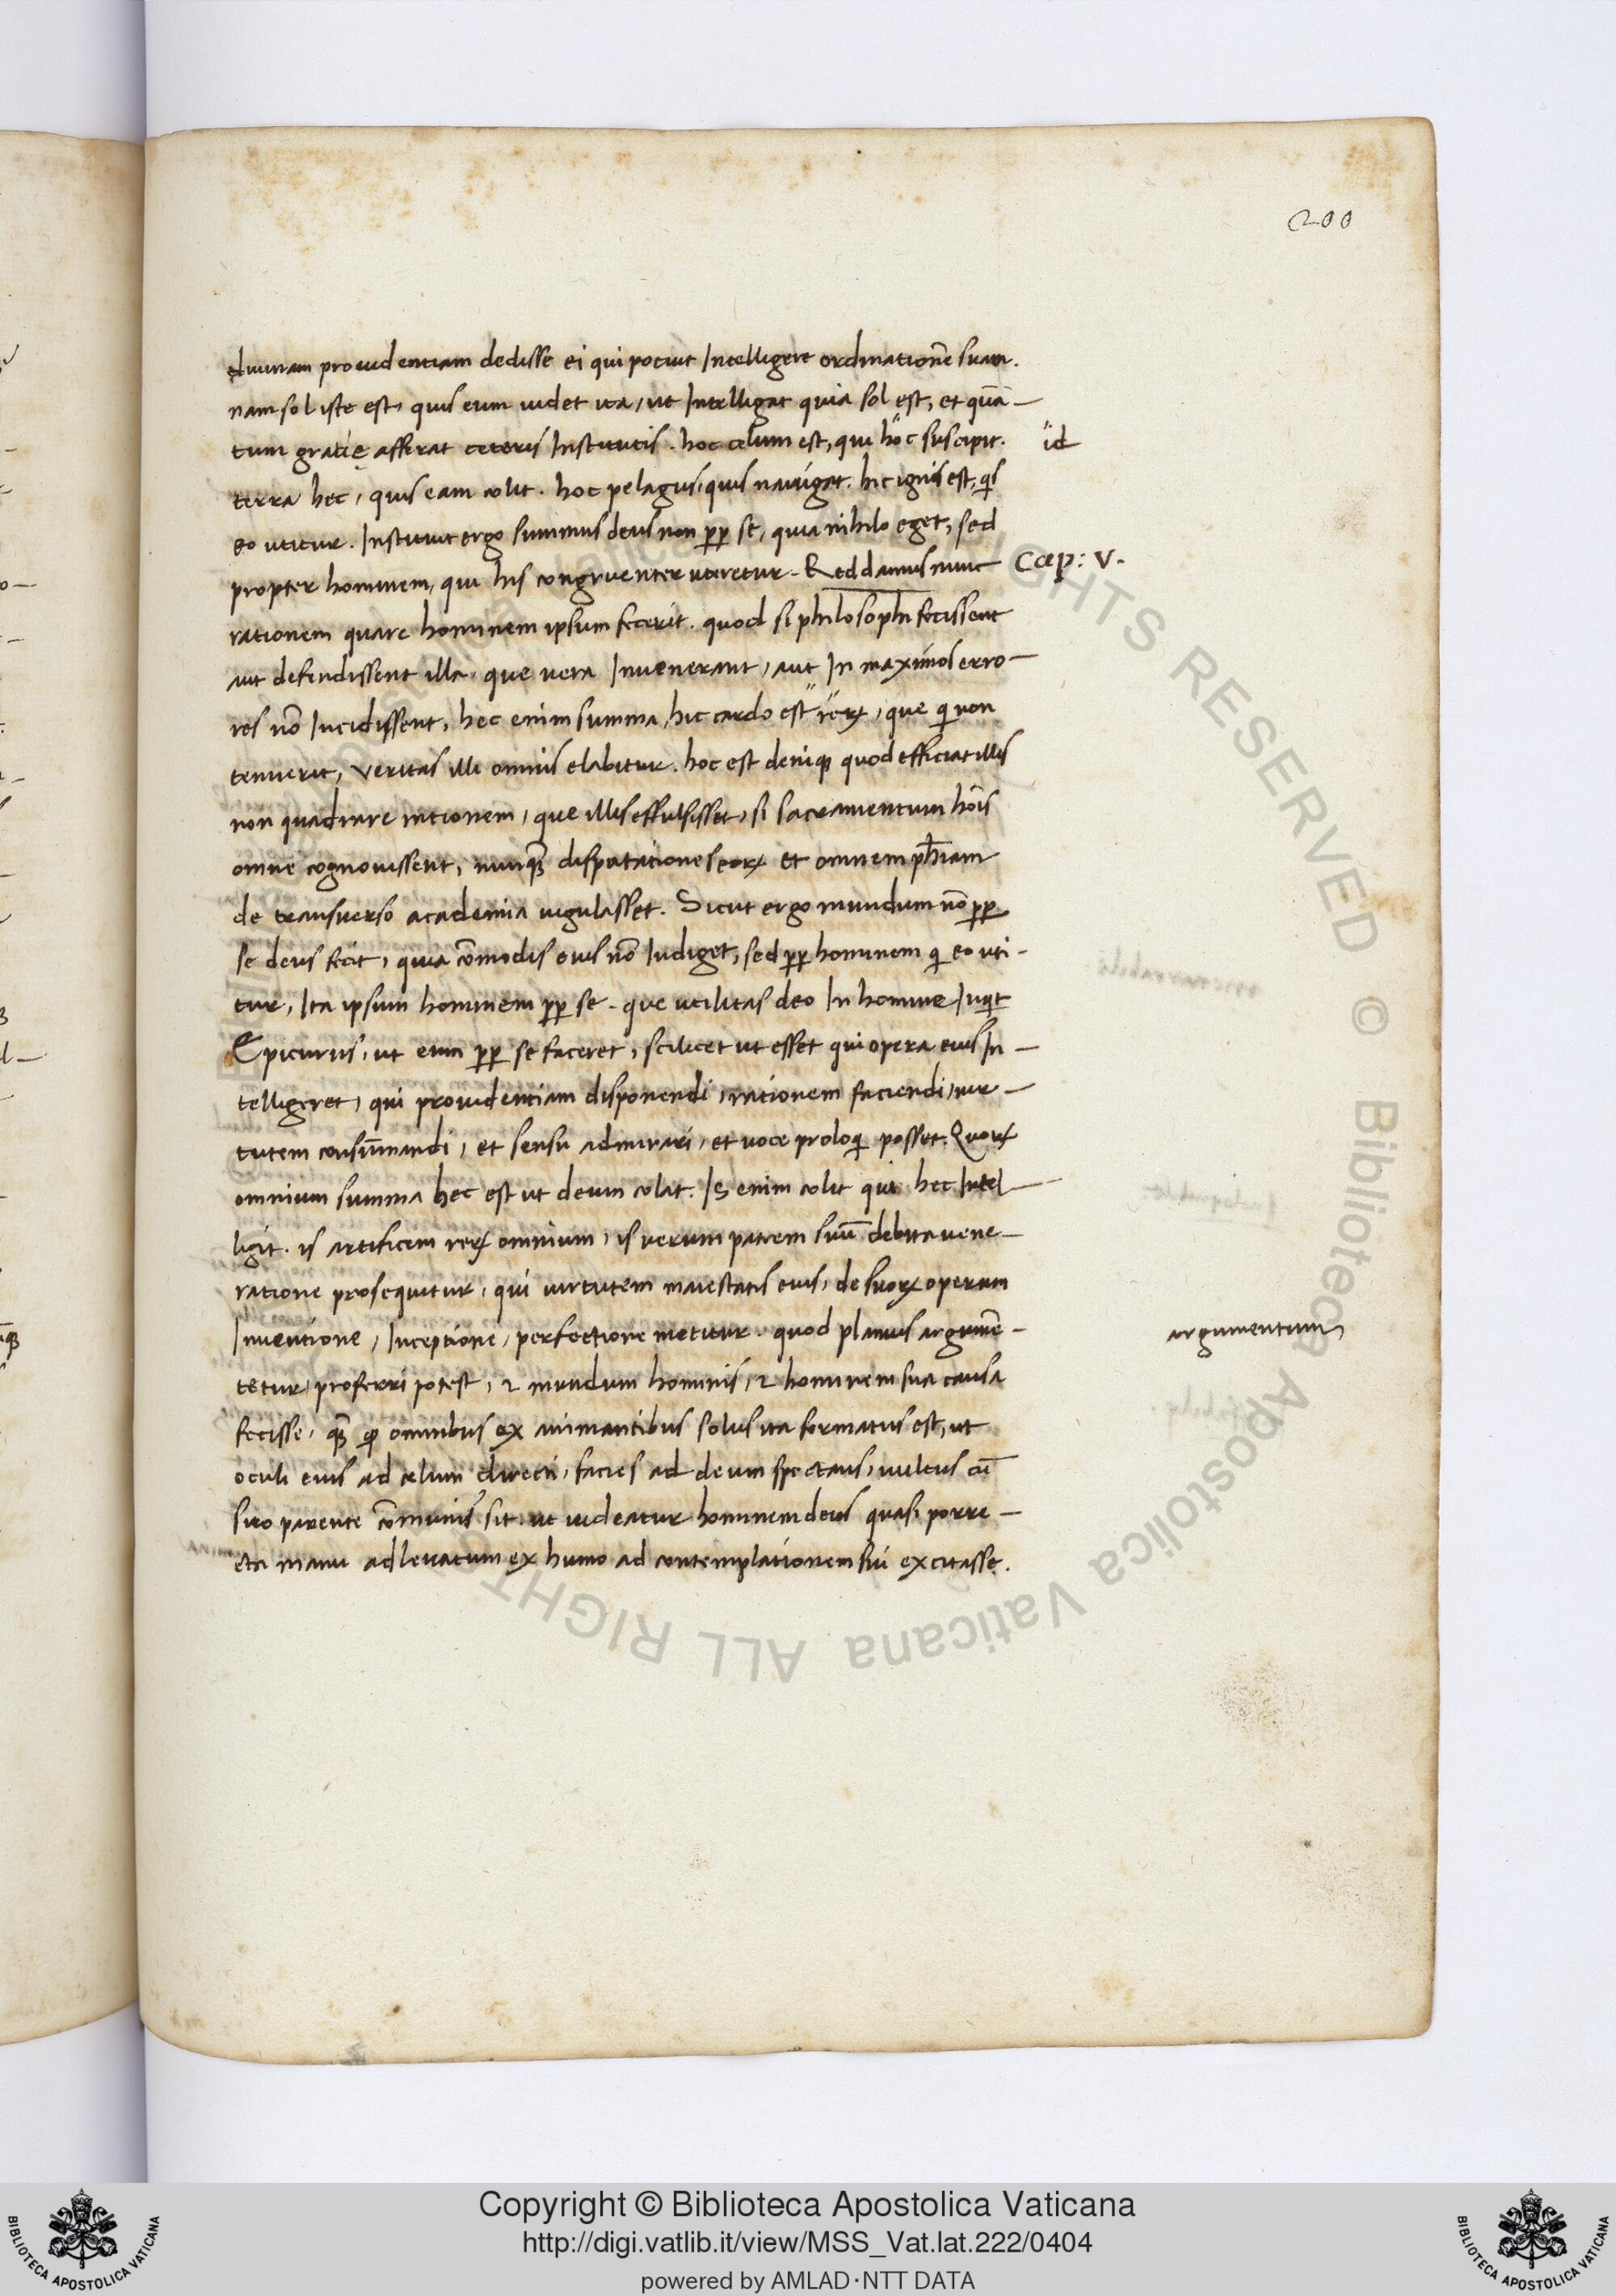 200
diuinam prouidentiam dedisse ei qui potuit Intelligere ordinationē suam.
nam sol iste est, quis eum uidet ita, ut Intelligat quia sol est, et quā-
tum gratię afferat ceteris Institutis. hoc celum est, qui hoc suscipit.
id
terra hec, quis eam colit. hoc pelagus, quis nauigat. hic ignis est, qs
eo utitur. Instituit ergo summus deus non pp se, quia nihilo eget, sed
propter hominem, qui his congruenter uteretur. Reddamus nunc
Cap: V.
rationem quare hominem ipsum fecerit. quod si philosophi fecissent
aut defendissent illa que uera Inuenerant, aut In maximos erro-
res nō Incidissent, hec enim summa, hic cardo est reꝝ, que qi non
tenuerit, veritas illi omnis elabitur. hoc est deniqꝫ quod efficiat illis
non quadrare rationem, que illis effulsisset, si sacramentum hōis
omne cognouissent, nunqꝫ disputationes eoꝝ et omnem ph̄iam
de transuerso academia iugulasset. Sicut ergo mundum nō pp
se deus fecit, quia cōmodis eius nō Indiget, sed pp hominem qi eo uti-
tur, Ita ipsum hominem pp se. que utilitas deo In homine Inqit
Epicurus, ut eum pp se faceret, scilicet ut esset qui opera eius In-
telligeret, qui prouidentiam disponendi, rationem faciendi, uir-
tutem consūmandi, et sensu admirari, et uoce proloqi posset. Quoꝝ
omnium summa hec est ut deum colat. Is enim colit qui hec Intel-
ligit. is artificem reꝝ omnium, is uerum patrem suū debita uene-
ratione prosequitur, qui uirtutem maiestatis eius, de suoꝝ operum
Inuentione, Inceptione, perfectione metitur. quod planius argumē-
argumentum
tetur, proferri potest, ⁊ mundum hominis, ⁊ hominem sua causa
fecisse, qꝫ ex omnibus ex animantibus solus ita formatus est, ut
oculi eius ad celum directi, facies ad deum spectans, uultus cū
suo parente cōmunis sit, ut uideatur hominem deus quasi porre-
cta manu adleuatum ex humo ad contemplationem sui excitasse.
© Biblioteca Apostolica Vaticana ALL RIGHTS RESERVED
Copyright © Biblioteca Apostolica Vaticana
http://digi.vatlib.it/view/MSS_Vat.lat.222/0404
powered by AMLAD·NTT DATA
BIBLIOTECA APOSTOLICA VATICANA
BIBLIOTECA APOSTOLICA VATICANA